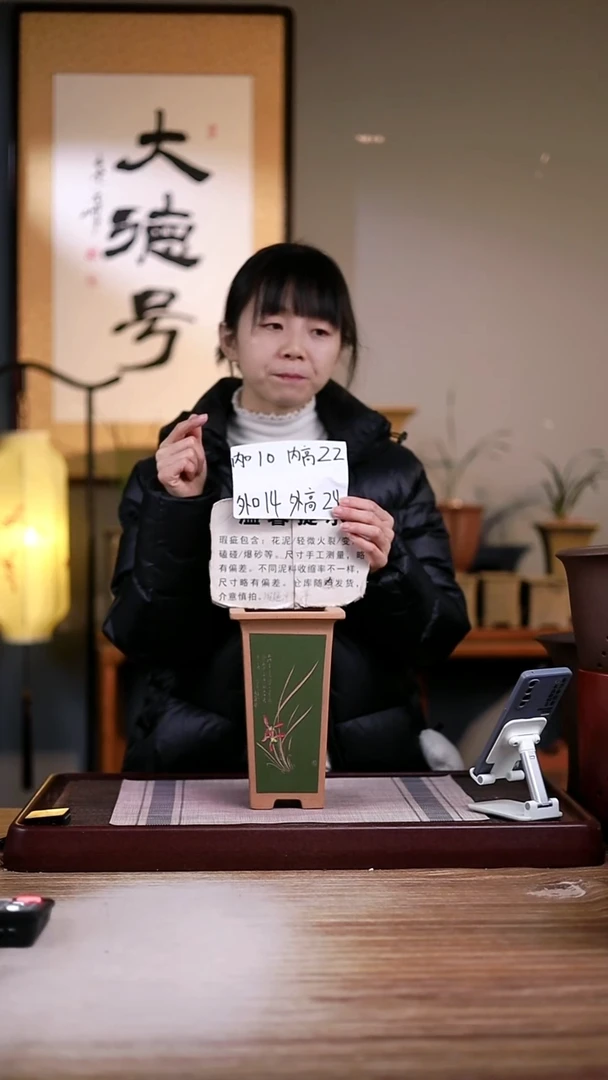 大
德
号
内口10 内高22
外口14 外高24
温馨提示
瑕疵包含：花泥/轻微火裂/变
磕碰/爆砂等。尺寸手工测量，略
有偏差。不同泥料收缩率不一样，
尺寸略有偏差。仓库随机发货，
介意慎拍。